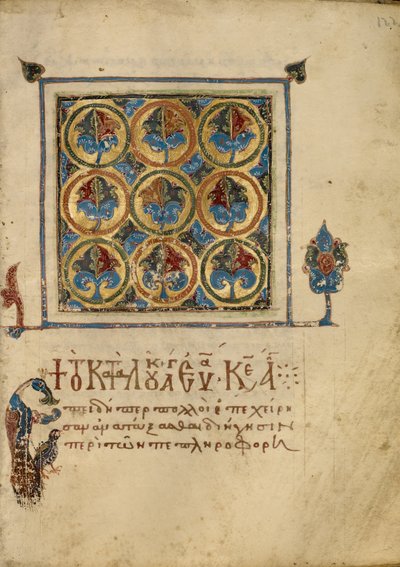 + ΤΟ ΚΑΤΑ ΛΟΥΚ ΕΥΑ. ΚΕ Α
Ἐπειδήπερ πολλοὶ ἐπεχείρη
σαν ἀνατάξασθαι διήγησιν
περὶ τῶν πεπληροφορη